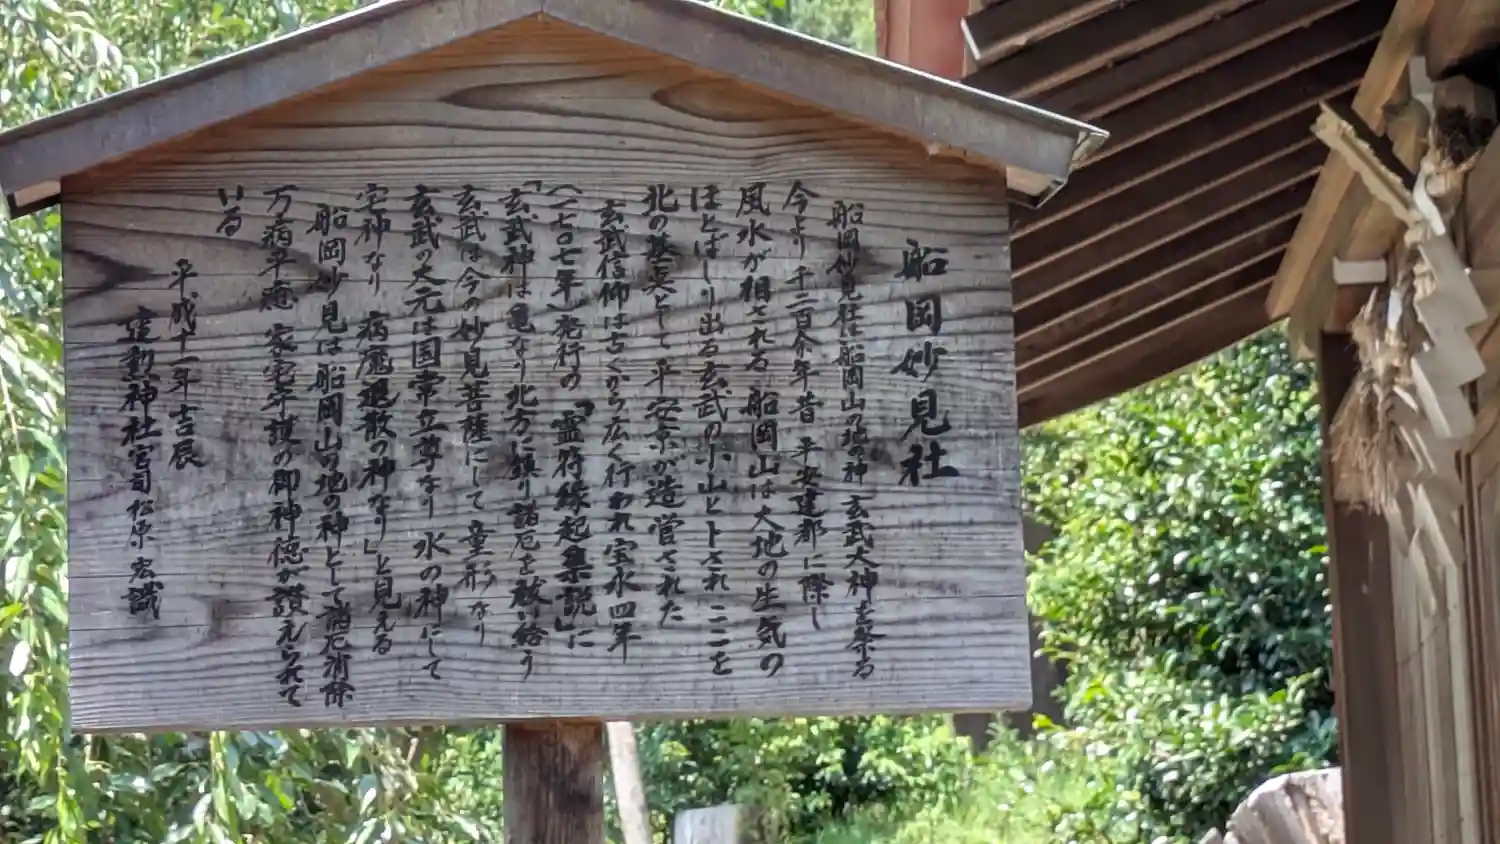 船岡妙見社
船岡妙見社は船岡山の地の神 玄武大神を祭る
今より千二百余年昔 平安建都に際し
風水が相される 船岡山は大地の生気の
ほとばしり出る玄武の小山と卜され ここを
北の基点として 平安京が造営された
玄武信仰は古くから広く行われ宝永四年
(一七〇七年)発行の「霊符縁起集説」に
「玄武神は亀なり北方に鎮り諸厄を救い給う
玄武は今の妙見菩薩にして 童形なり
玄武の大元は国常立尊なり 水の神にして
宅神なり 病魔退散の神なり」と見える
船岡妙見は船岡山の地の神として諸厄消除
万病平癒 家宅守護の御神徳が讃えられて
いる
平成十一年吉辰
建勲神社宮司 松原 宏 識